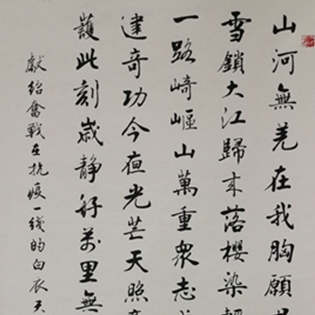 山河無羌在我胸願
雪鎖大江歸来落櫻染
一路崎嶇山萬重衆志
建奇功今夜光芒天照
護此刻歲静好萬里無
獻給奮戰在抗疫一线的白衣天